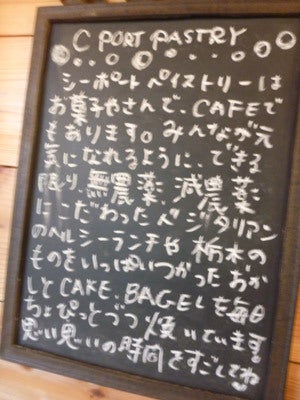 C PORT PASTRY
シーポートペイストリーは
お菓子やさんで、CAFEで
もあります。みんなが元
気になれるように、できる
限り、無農薬、減農薬
にこだわったベジタリアン
のヘルシーランチや 栃木の
ものをいっぱいつかったおか
しとCAKE、BAGELを毎日
ちょぴっとづつ 焼いています。
思い思いの時間をすごしてね